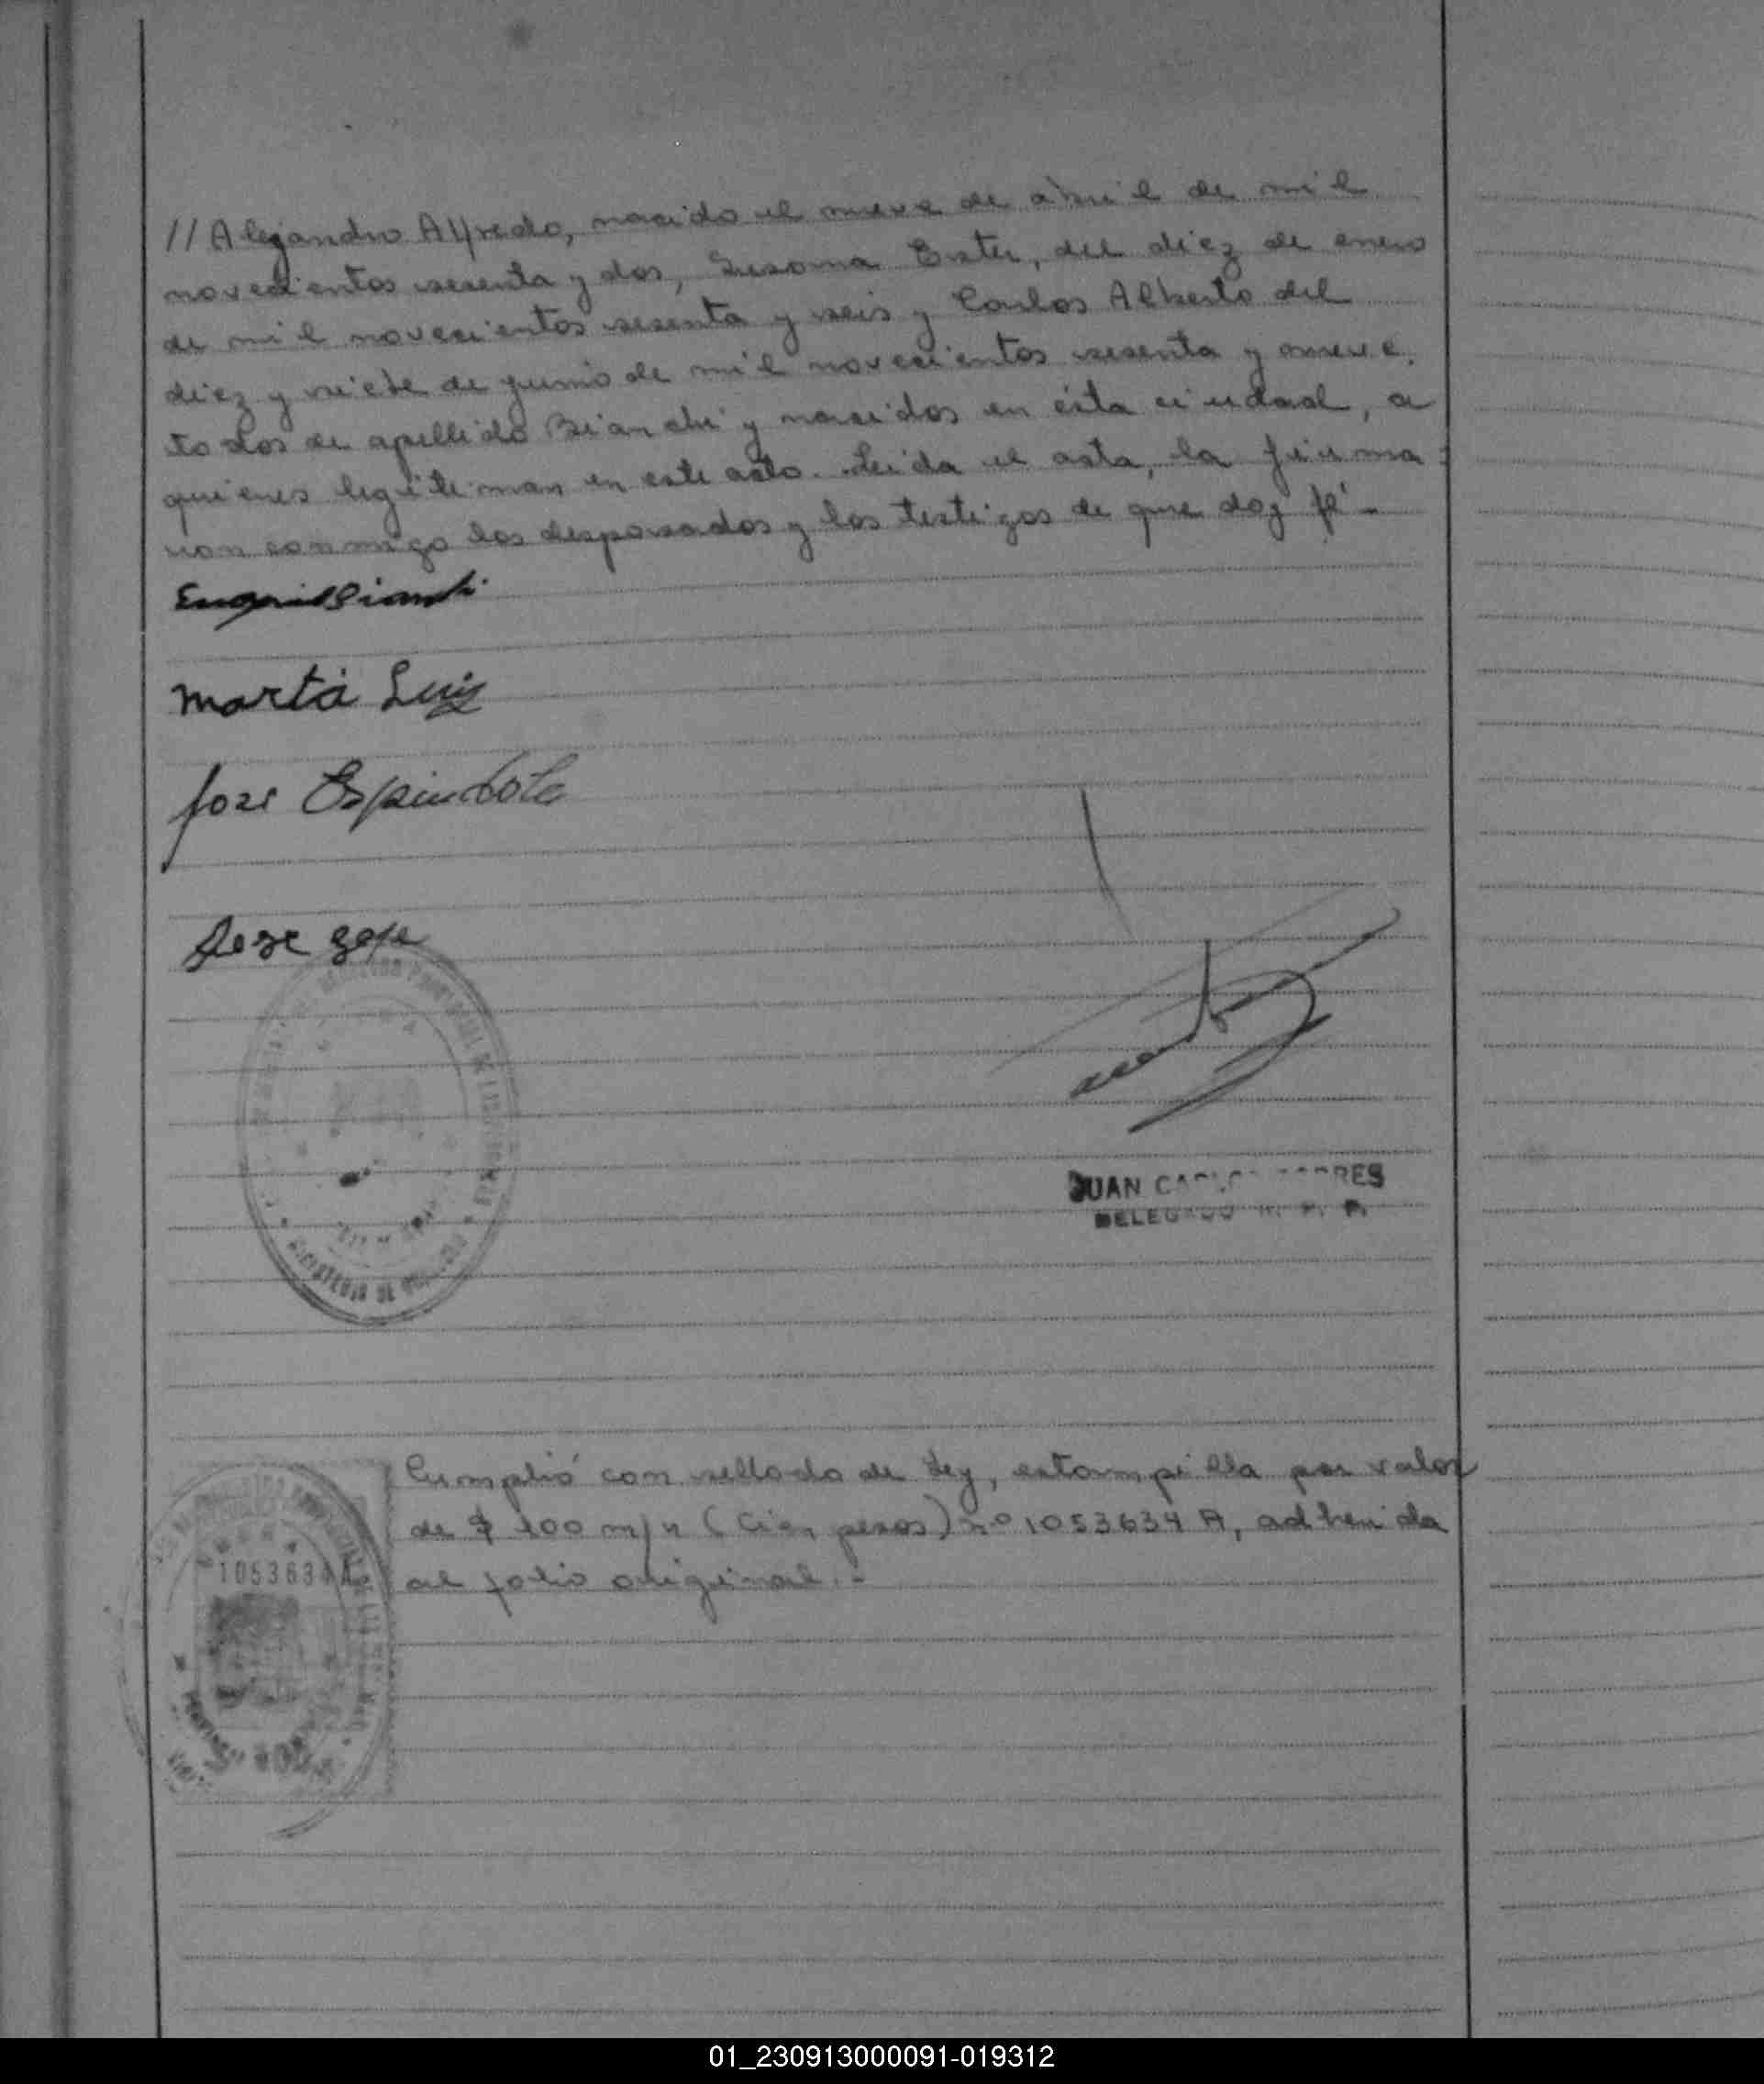 // Alejandro Alfredo, nacido el nueve de abril de mil
novecientos sesenta y dos, Susana Ester, del diez de enero
de mil novecientos sesenta y seis y Carlos Alberto del
diez y siete de junio de mil novecientos sesenta y nueve.
todos de apellido Bianchi y nacidos en ésta ciudad, a
quienes legitiman en este acto. Leída el acta, la firma
ron conmigo los desposados y los testigos de que doy fé.-
Marta Luis
Jose Espindola
JUAN
DELEGADO
Cumplió con sellado de Ley, estampilla por valor
de $ 100 m/n (Cien pesos) nº 1053634 A, adherida
al folio original.-
1053634 A
MINISTERIO DE
01_230913000091-019312